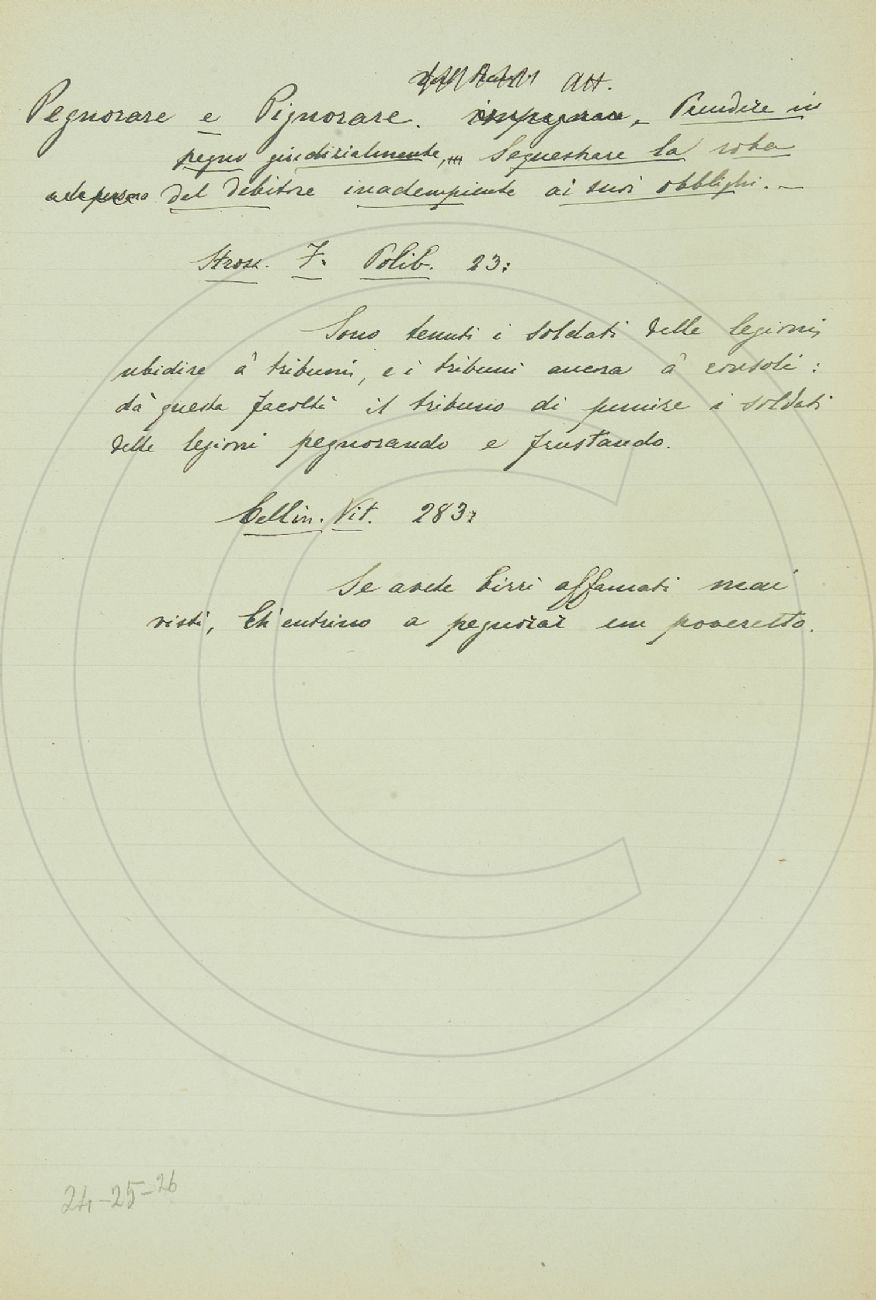 Att.
Pegnorare e Pignorare. Prendere in
pegno giudizialmente, Sequestrare la roba
del debitore inadempiente ai suoi obblighi. —
Stroz. F. Polib. 23:
Sono tenuti i soldati delle legioni
ubidire a' tribuni, e i tribuni ancora a' consoli:
dà questa facoltà il tribuno di punire i soldati
delle legioni pegnorando e frustando.
Cellin. Vit. 283:
Se avete birri affamati mai
visti, Ch'entrino a pegnorar un poveretto.
24-25-26